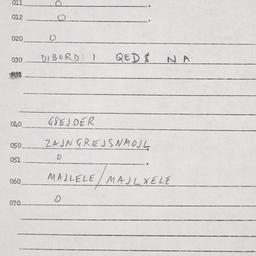 011 0
012 0
020 0
030 DIBORD I QED$ NA
040 GBEJDER
050 ZAJNGREJSNMOJL
051 0
060 MAJLELE/MAJLXELE
070 0